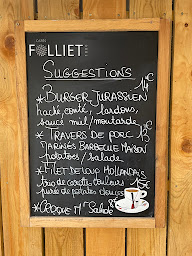 CAFÉS
FOLLIET
SUGGESTIONS
* BURGER JURASSIEN 14€
haché, comté, lardons,
sauce miel/moutarde
* TRAVERS DE PORC 13€
MARINÉS BARBECUE MAISON
potatoes/salade
* FILET DE LOUP HOLLANDAIS
trio de carotte couleurs 15€
purée de patates douces
Salade 8€